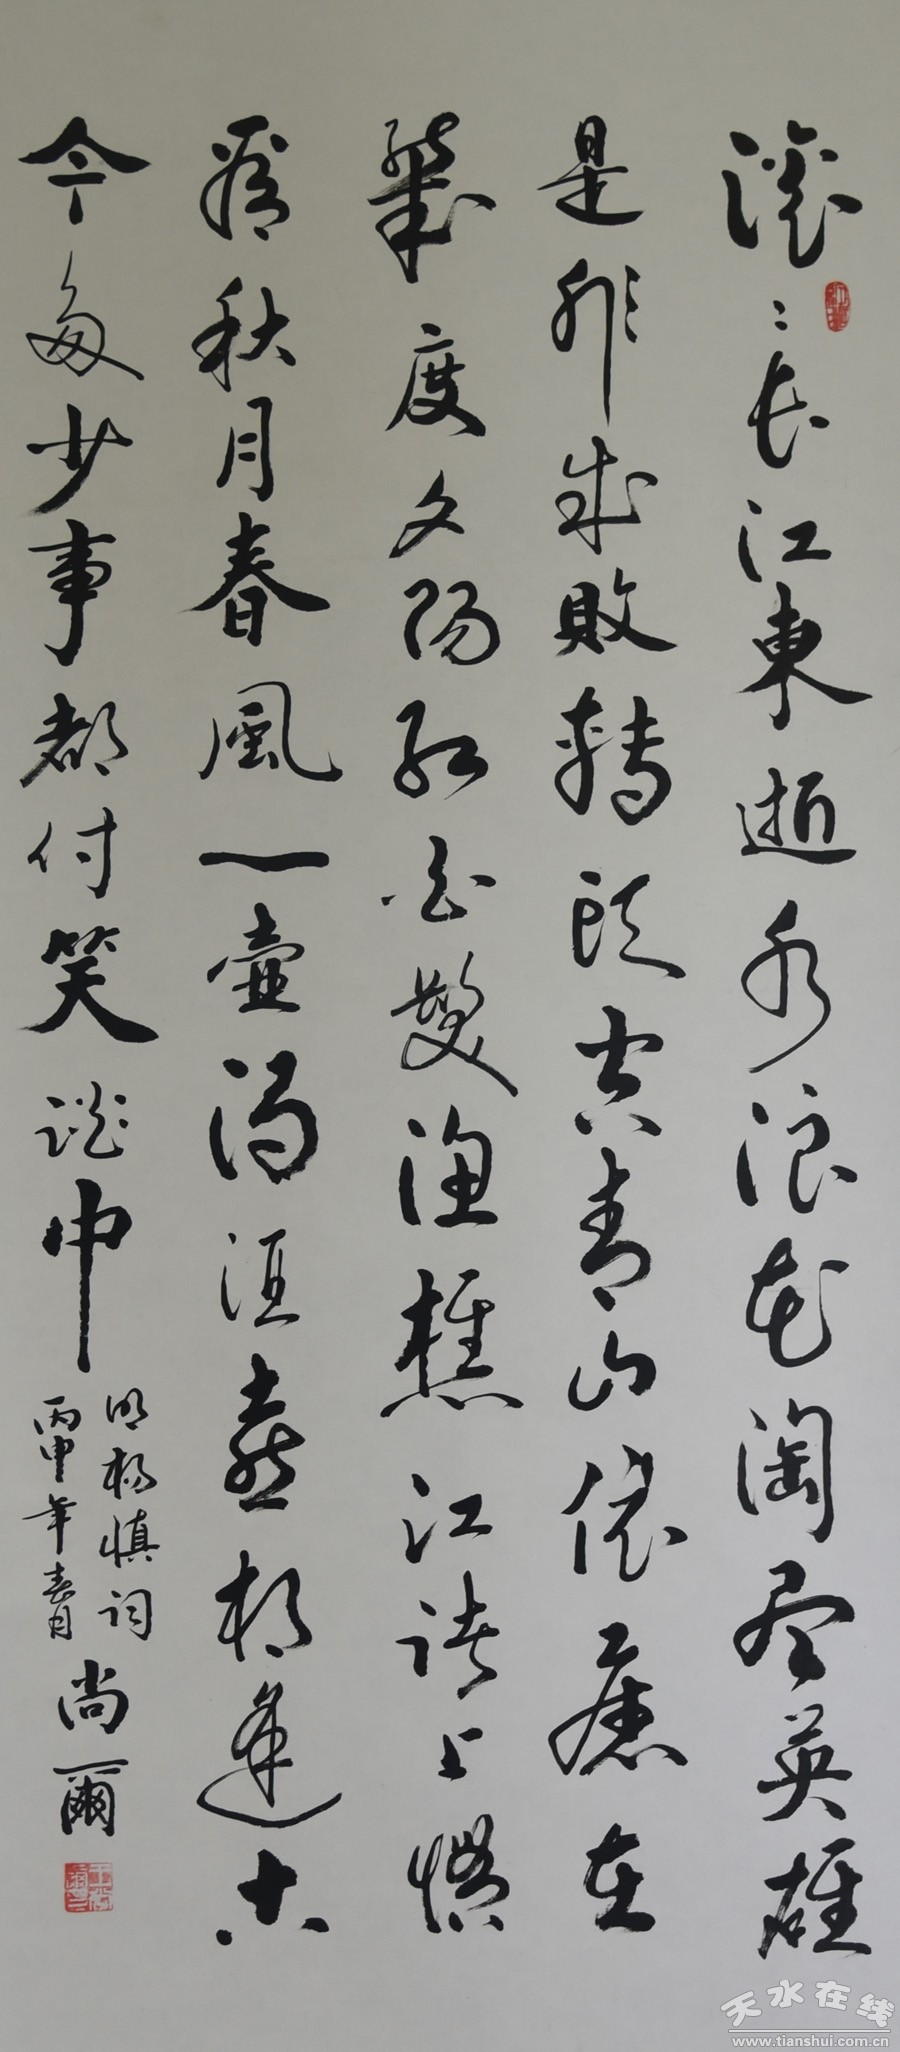 滚〻长江東逝水浪花淘尽英雄
是非成敗轉頭空青山依舊在
幾度夕陽紅白髮漁樵江渚上慣
看秋月春風一壺濁酒喜相逢古
今多少事都付笑談中
明楊慎词
丙申年春月
尚爾
天水在线
www.tianshui.com.cn